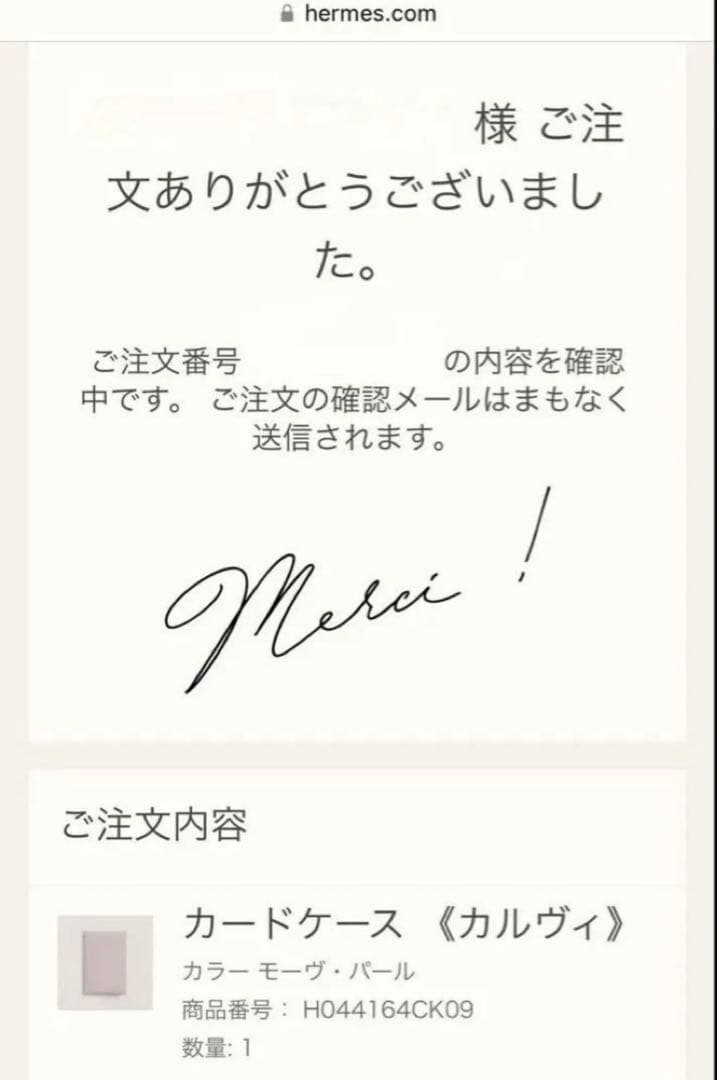 hermes.com
様 ご注
文ありがとうございまし
た。
ご注文番号 の内容を確認
中です。 ご注文の確認メールはまもなく
送信されます。
Merci !
ご注文内容
カードケース 《カルヴィ》
カラー モーヴ・パール
商品番号： H044164CK09
数量: 1